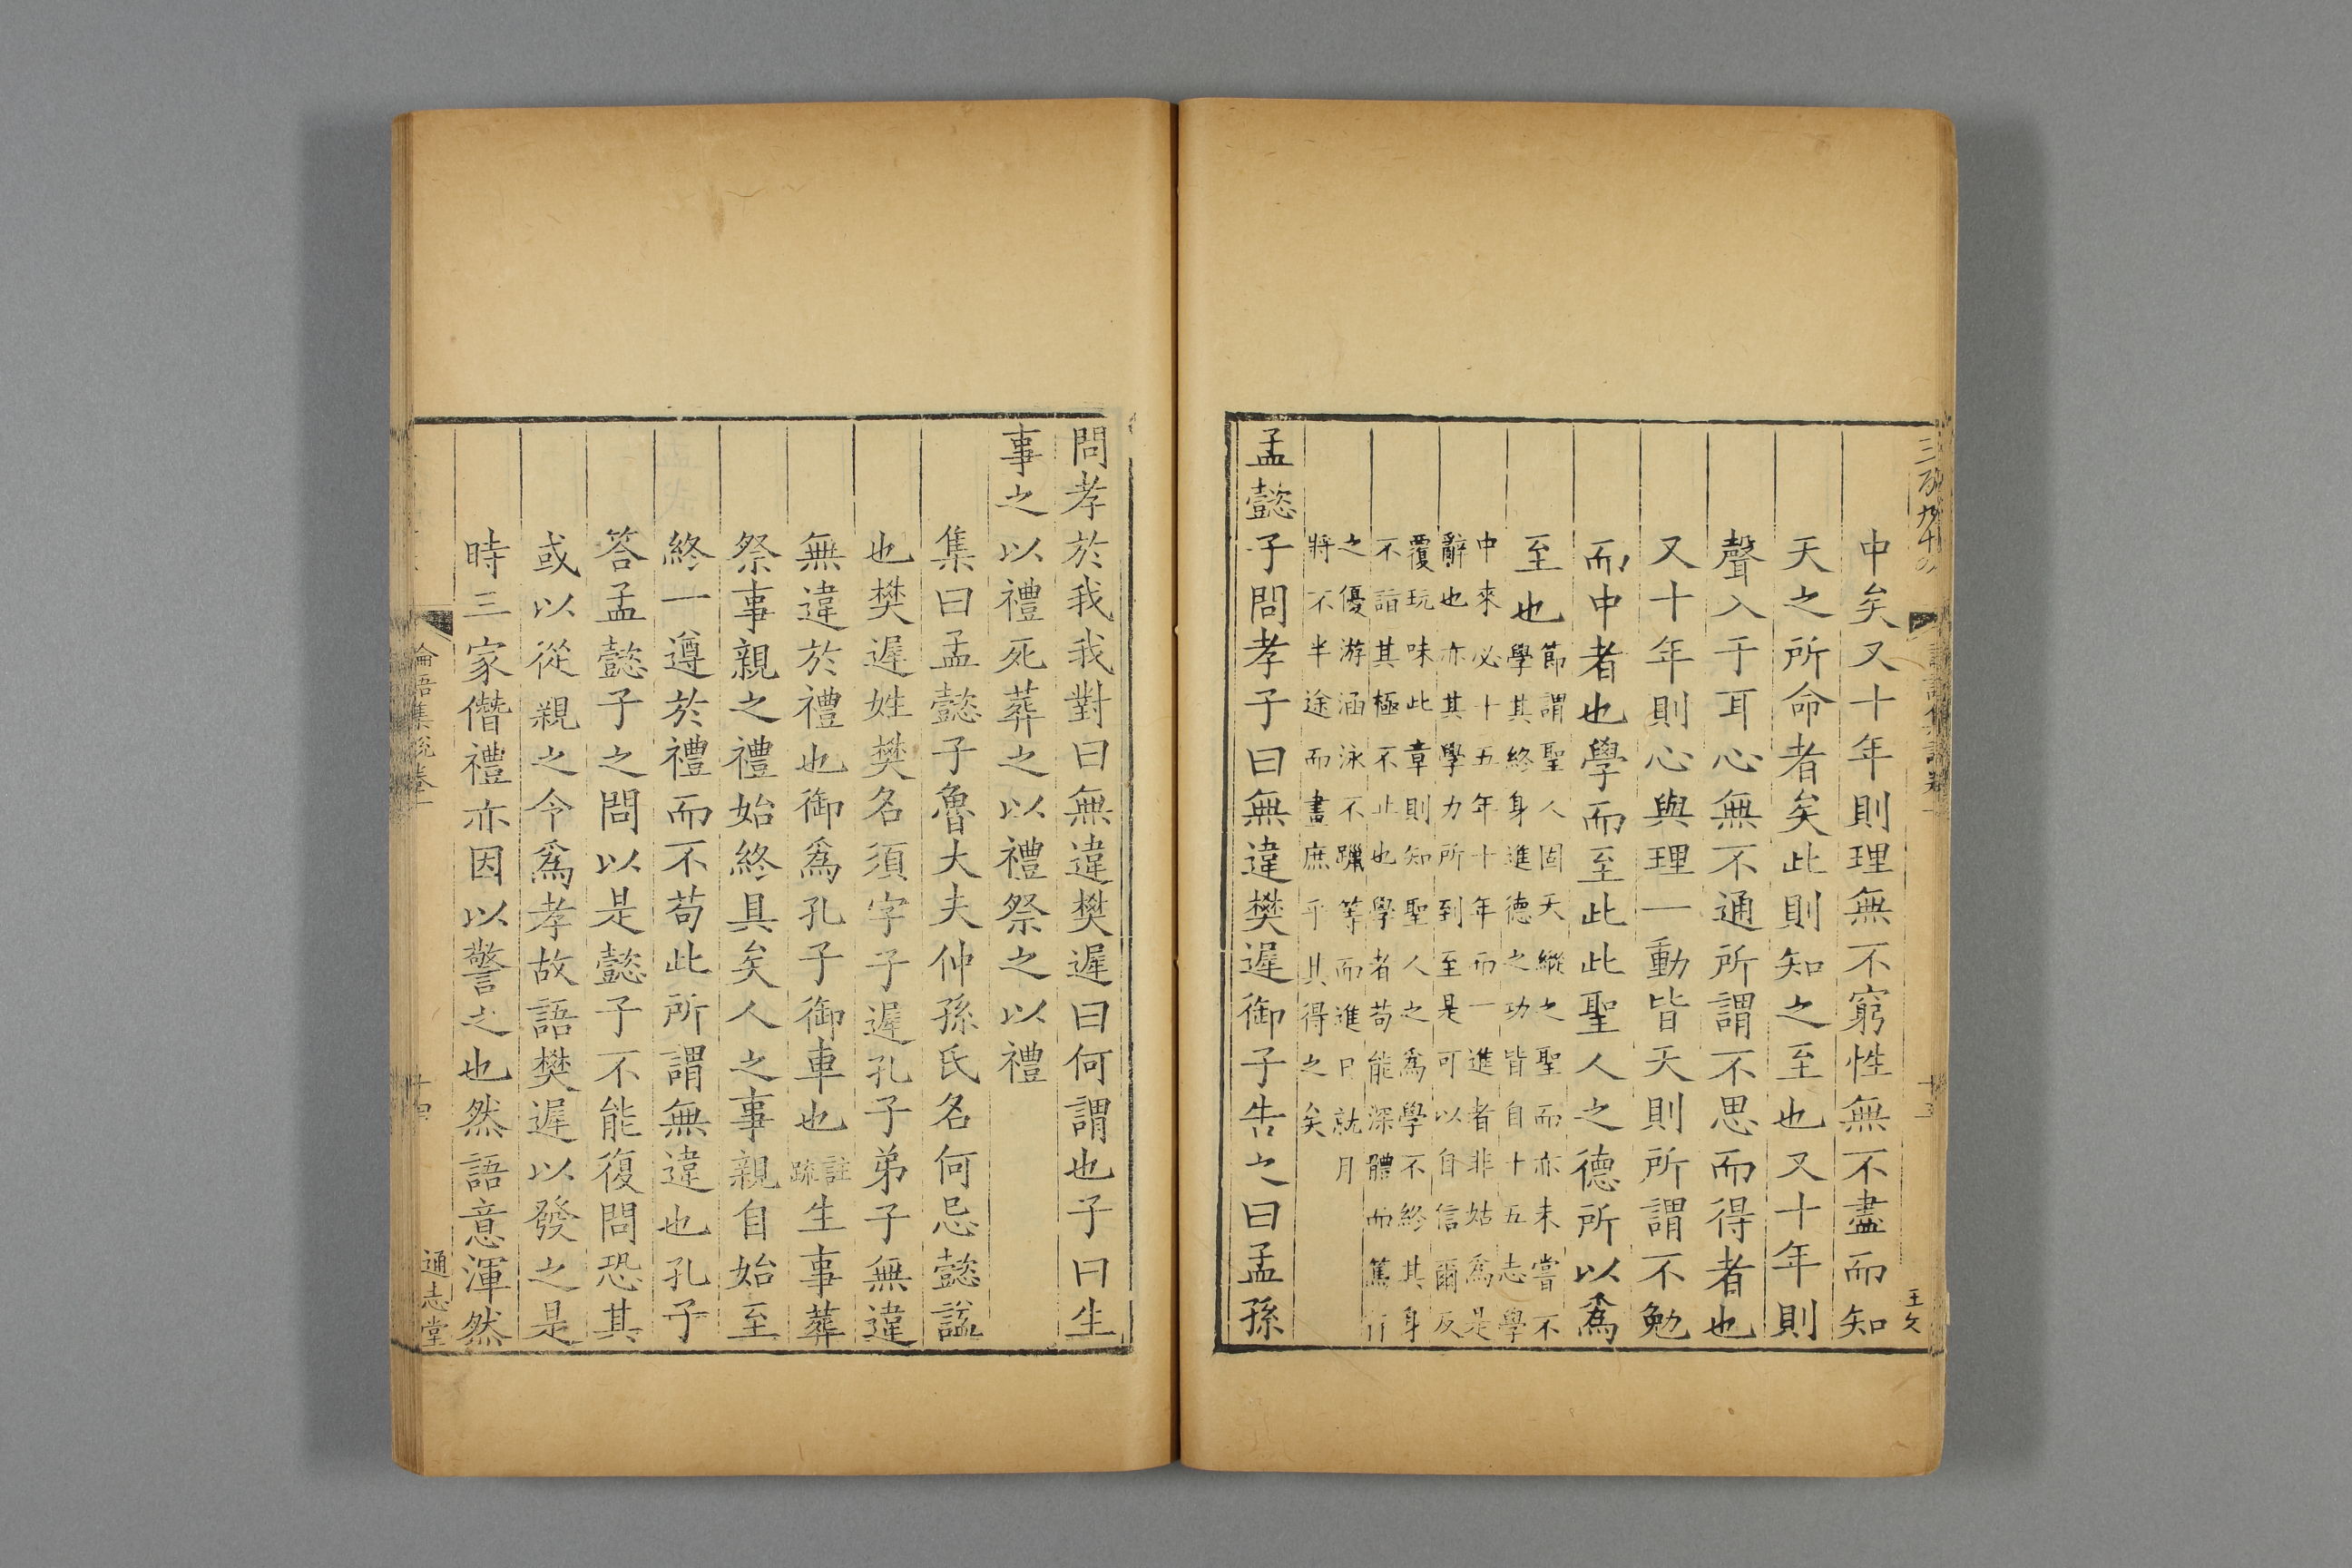 中矣又十年則理無不窮性無不盡而知
天之所命者矣此則知之至也又十年則
聲入于耳心無不通所謂不思而得者也
又十年則心與理一動皆天則所謂不勉
而中者也學而至此此聖人之德所以爲
至也
節謂聖人固天縱之聖而亦未嘗不
學其終身進德之功皆自十五志學
中來必十五年十年而一進者非姑爲是
辭也亦其學力所到至是可以自信爾反
覆玩味此章則知聖人之爲學不終其身
不詣其極不止也學者苟能深體而篤行
之優游涵泳不躐等而進日就月
將不半途而畫庶乎其得之矣
孟懿子問孝子曰無違樊遲御子告之曰孟孫
王文
問孝於我我對曰無違樊遲曰何謂也子曰生
事之以禮死葬之以禮祭之以禮
集曰孟懿子魯大夫仲孫氏名何忌懿謚
也樊遲姓樊名須字子遲孔子弟子無違
無違於禮也御爲孔子御車也註疏生事葬
祭事親之禮始終具矣人之事親自始至
終一遵於禮而不苟此所謂無違也孔子
答孟懿子之問以是懿子不能復問恐其
或以從親之令爲孝故語樊遲以發之是
時三家僭禮亦因以警之也然語意渾然
論語集說卷一
十四
通志堂